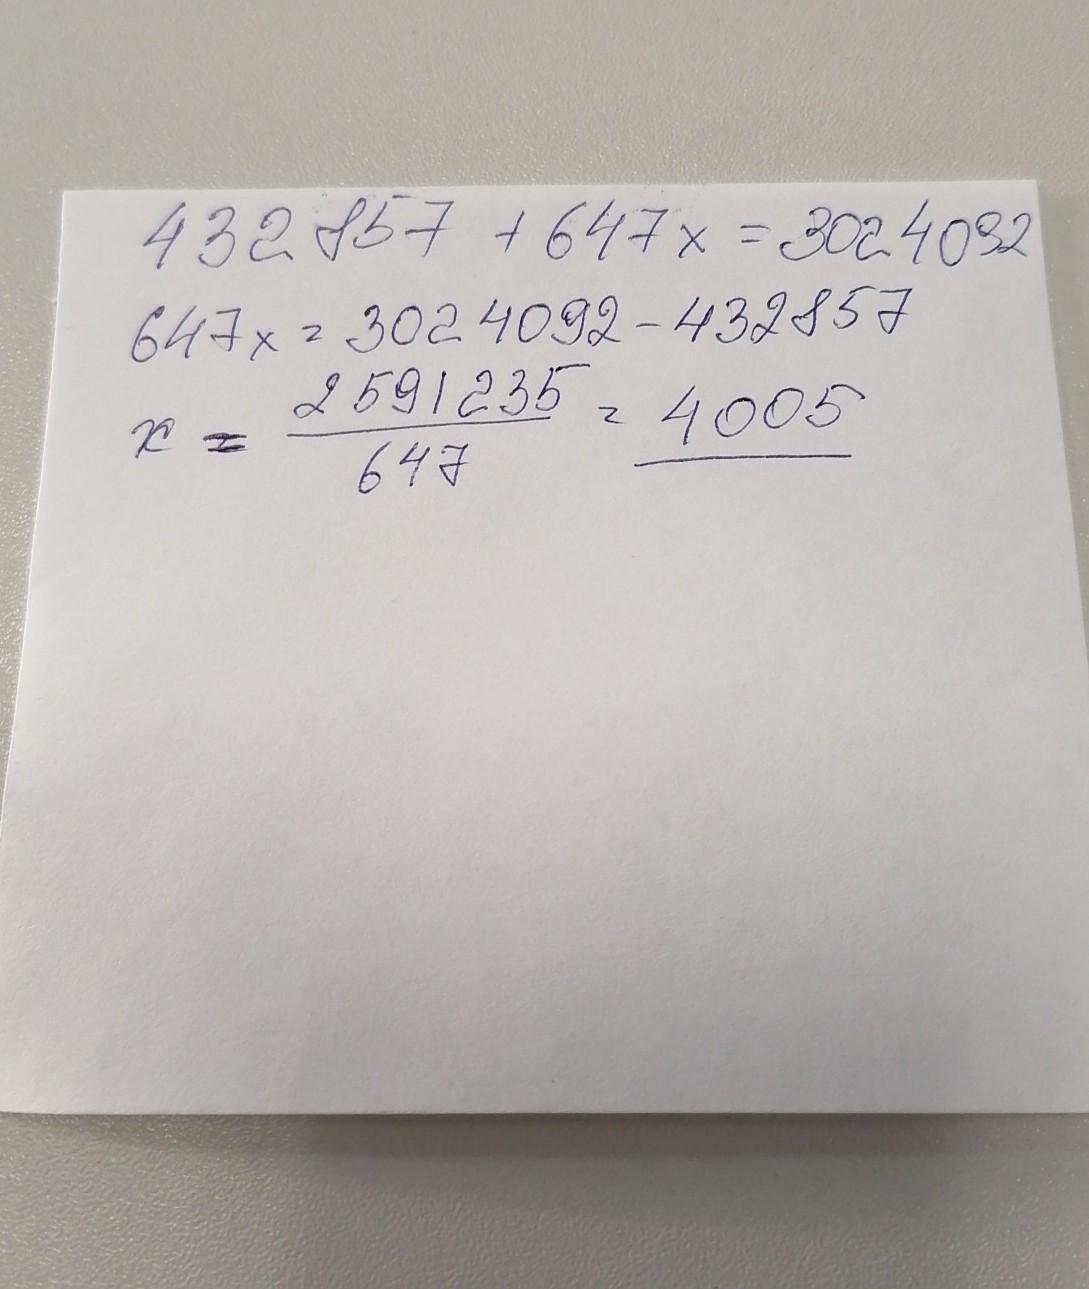 432857 + 647x = 3024092
647x = 3024092 - 432857
x = 2591235 / 647 = 4005